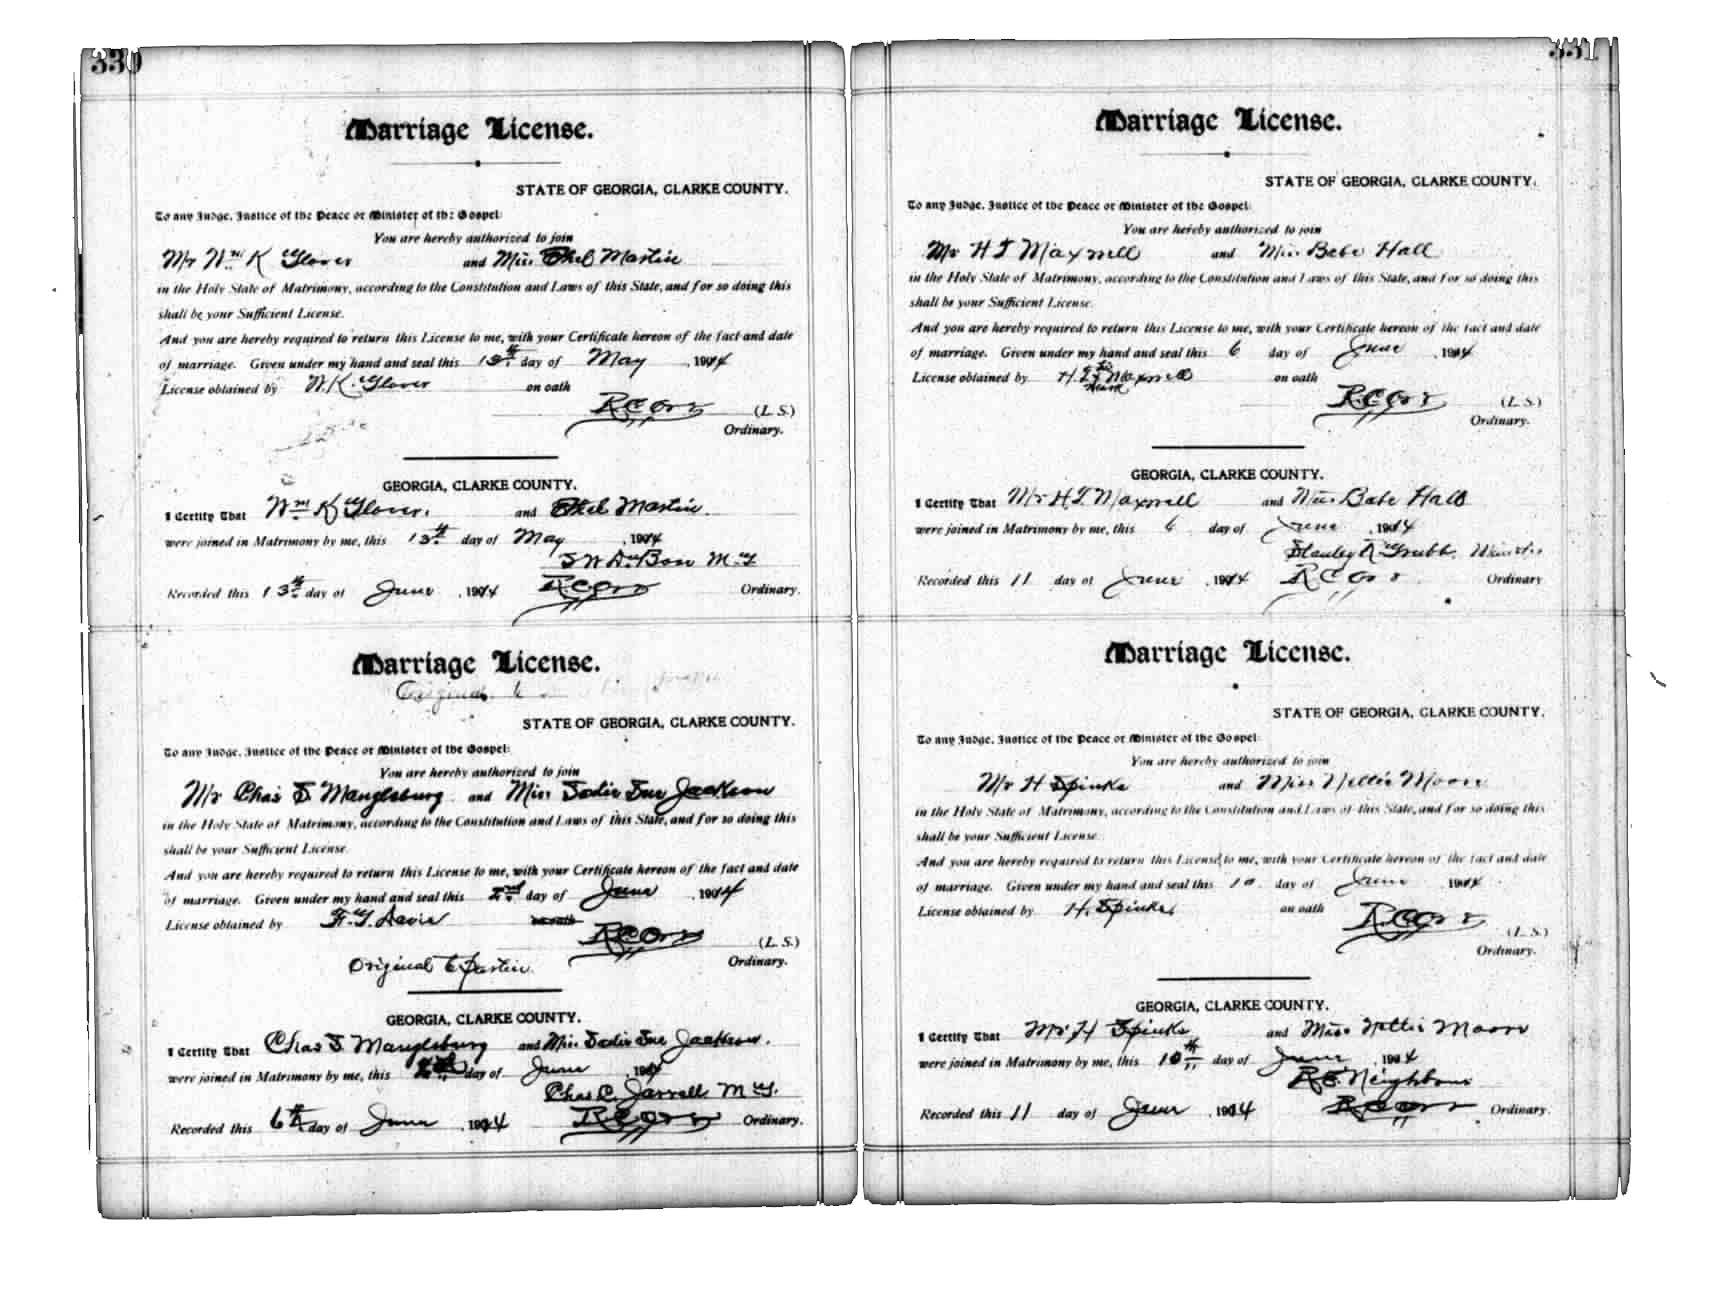 330
Marriage License.
STATE OF GEORGIA, CLARKE COUNTY.
To any Judge, Justice of the Peace or Minister of the Gospel:
You are hereby authorized to join
Mr Wm K Glover and Miss Ethel Martin
in the Holy State of Matrimony, according to the Constitution and Laws of this State, and for so doing this
shall be your Sufficient License.
And you are hereby required to return this License to me, with your Certificate hereon of the fact and date
of marriage. Given under my hand and seal this 13th day of May, 1914
License obtained by W. K. Glover on oath
R C Orr (L. S.)
Ordinary.
GEORGIA, CLARKE COUNTY.
I Certify That Wm K Glover. and Ethel Martin.
were joined in Matrimony by me, this 13th day of May, 1914
S W DuBose M. G
Recorded this 13th day of June, 1914 R C Orr Ordinary.
Marriage License.
Original
STATE OF GEORGIA, CLARKE COUNTY.
To any Judge, Justice of the Peace or Minister of the Gospel:
You are hereby authorized to join
Mr Chas S Manglsburg and Miss Sadie Sue Jackson
in the Holy State of Matrimony, according to the Constitution and Laws of this State, and for so doing this
shall be your Sufficient License.
And you are hereby required to return this License to me, with your Certificate hereon of the fact and date
of marriage. Given under my hand and seal this 2nd day of June, 1914
License obtained by Davis
R C Orr (L. S.)
Original Ordinary.
GEORGIA, CLARKE COUNTY.
I Certify That Chas S Manglsburg and Miss Sadie Sue Jackson.
were joined in Matrimony by me, this day of June, 1914
Chas C. Jarrell M. G.
Recorded this 6th day of June, 1914 R C Orr Ordinary.
331
Marriage License.
STATE OF GEORGIA, CLARKE COUNTY.
To any Judge, Justice of the Peace or Minister of the Gospel:
You are hereby authorized to join
Mr H T Maxwell and Miss Babe Hall
in the Holy State of Matrimony, according to the Constitution and Laws of this State, and for so doing this
shall be your Sufficient License.
And you are hereby required to return this License to me, with your Certificate hereon of the fact and date
of marriage. Given under my hand and seal this 6 day of June, 1914
License obtained by H. T. Maxwell on oath
R. C. Orr (L. S.)
Ordinary.
GEORGIA, CLARKE COUNTY.
I Certify That Mr H. T. Maxwell and Miss Babe Hall
were joined in Matrimony by me, this 6 day of June, 1914
Stanley R. Grubb, Minister
Recorded this 11 day of June, 1914 R C Orr Ordinary
Marriage License.
STATE OF GEORGIA, CLARKE COUNTY.
To any Judge, Justice of the Peace or Minister of the Gospel:
You are hereby authorized to join
Mr H Spinks and Miss Nellie Moon
in the Holy State of Matrimony, according to the Constitution and Laws of this State, and for so doing this
shall be your Sufficient License.
And you are hereby required to return this License to me, with your Certificate hereon of the fact and date
of marriage. Given under my hand and seal this 10. day of June 1914
License obtained by H. Spinks, on oath
R. C. Orr (L. S.)
Ordinary.
GEORGIA, CLARKE COUNTY.
I Certify That Mr H Spinks and Miss Nellie Moon
were joined in Matrimony by me, this 10th day of June, 1914
R E. Neighbour
Recorded this 11 day of June, 1914 R C Orr Ordinary.